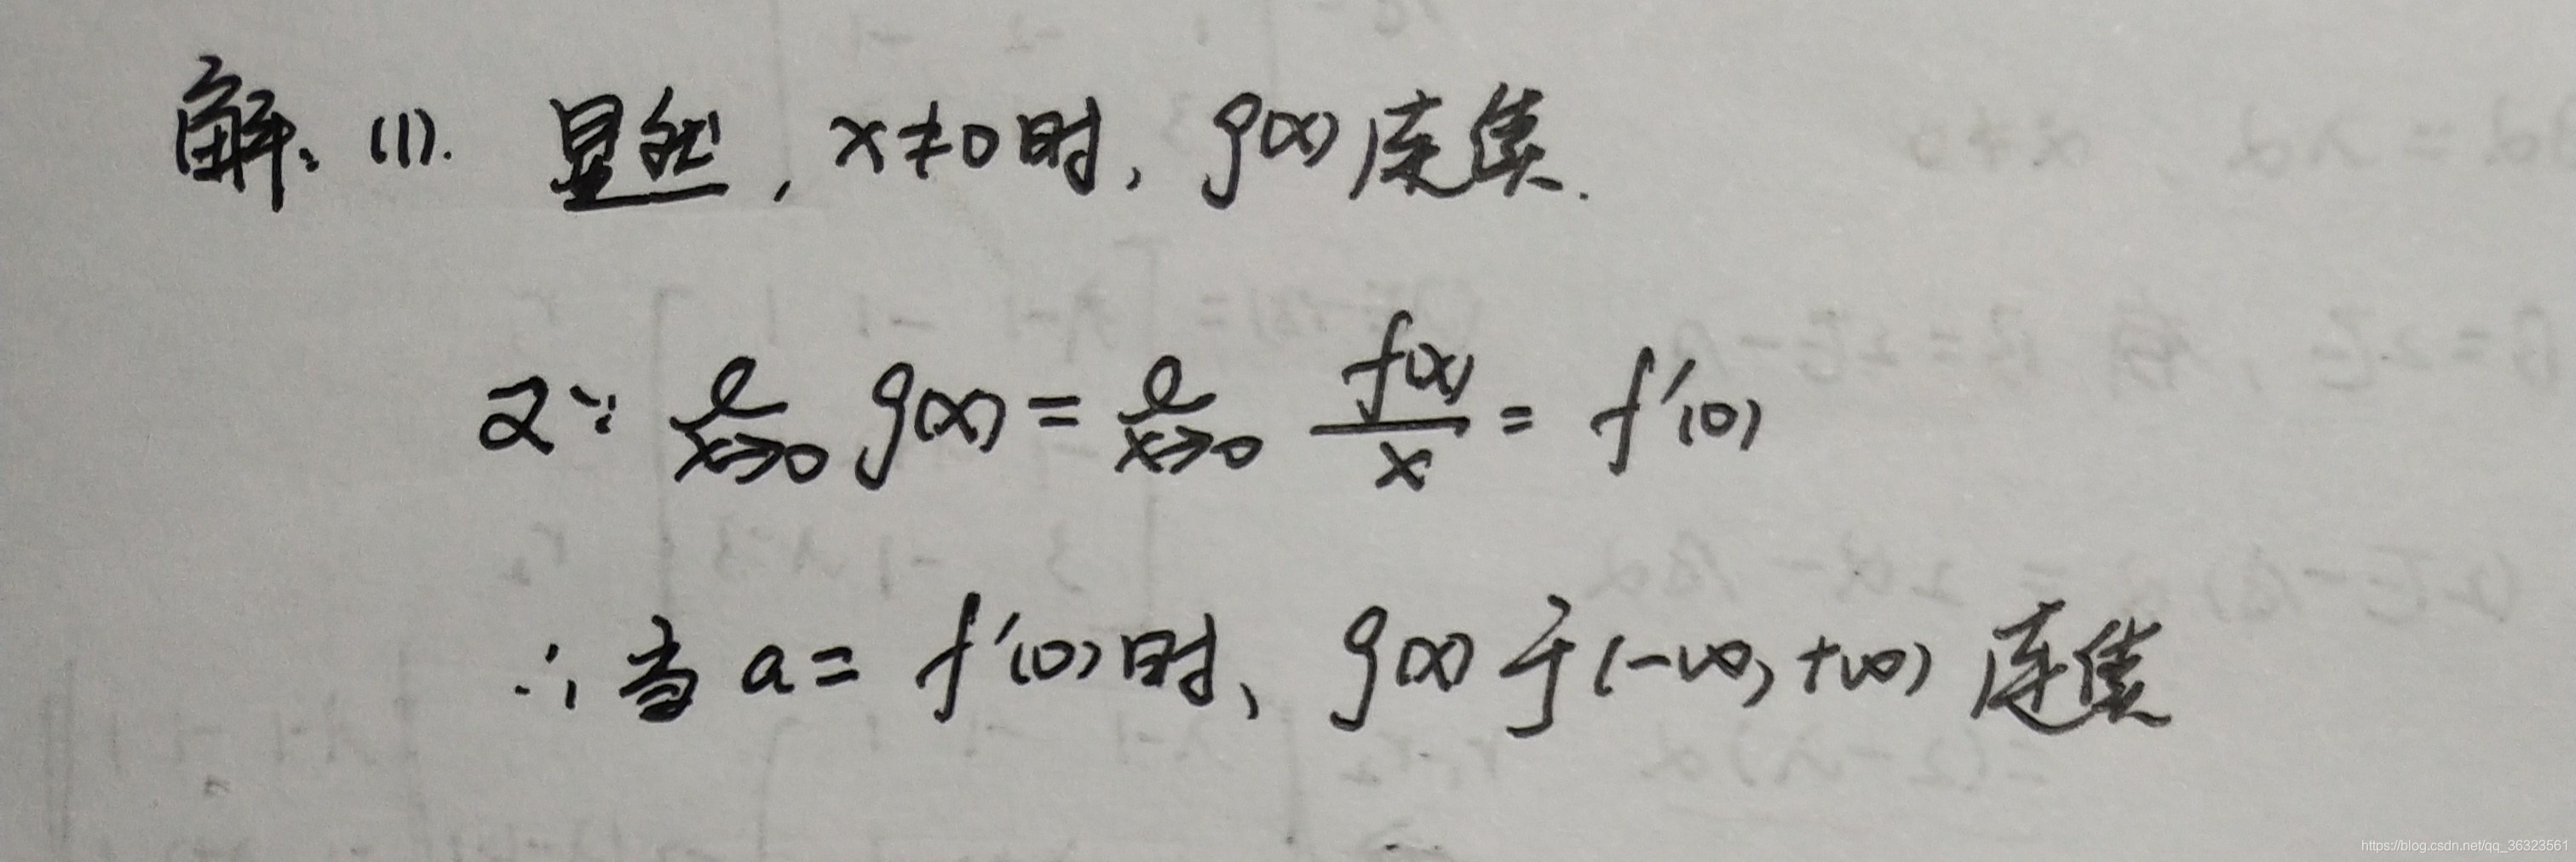 解: (1). 显然, x≠0时, g(x)连续.
又∵ lim x→0 g(x) = lim x→0 f(x)/x = f'(0)
∴ 当 a = f'(0)时, g(x)于(-∞, +∞)连续
https://blog.csdn.net/qq_36323561